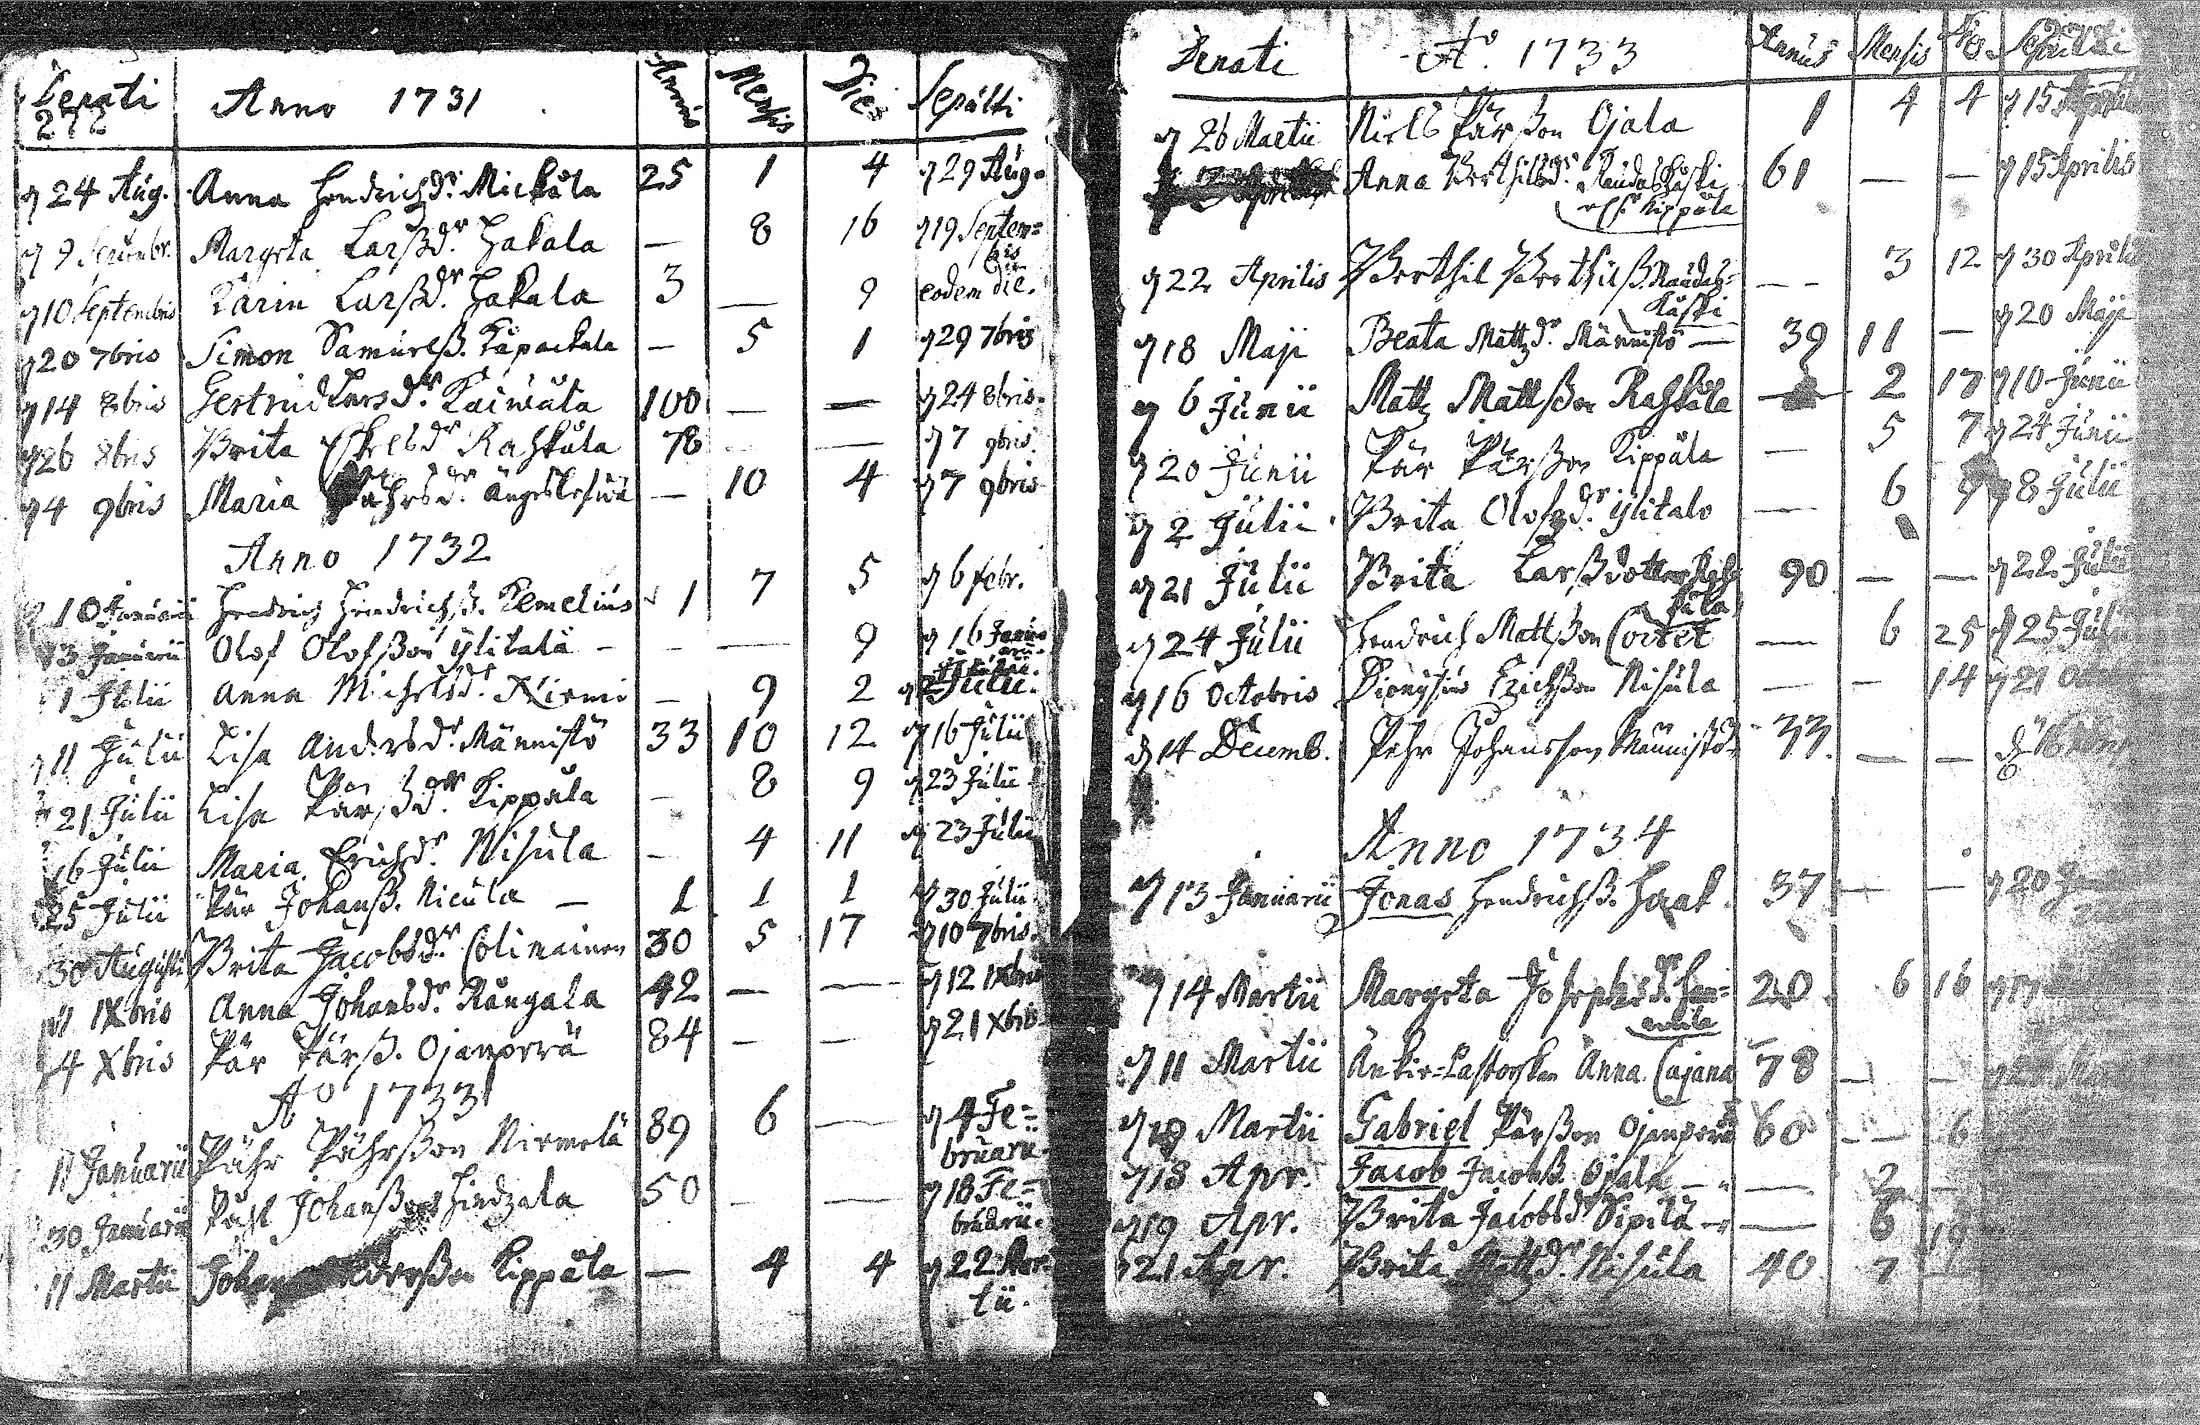 Denati Anno 1731 Annus Mensis Dies Sepulti
272
d 24 Aug. Anna Hendrichsdr. Mickůla 25 1 4 d 29 Aug.
d 9 Septembr. Margeta Larßdr. Hakala — 8 16 d 19 Septem=
bris
d 10 Septembris Karin Larßdr. Hakala 3 — 9 eodem die.
d 20 7bris Simon Samuelß. — 5 1 d 29 7bris
d 14 8bris Gertrud Larsdr. 100 — — d 24 8bris.
d 26 8bris Brita Eskelsdr Raskůla 78 — — d 7 9bris.
d 4 9bris Maria Påhrsdr. — 10 4 d 7 9bris
Anno 1732
10 Januarii Hendrich Hendrichß. Kemelius 1 7 5 d 6 febr.
3 Januarii Olof Olofßon Ylitalå — — — 9 d 16 Janu
arii.
1 Julii Anna Michelsdr. Niemi — 9 2 Julii.
d 11 Julii Lisa Andersdr. Männistö 33 10 12 d 16 Julii
21 Julii Lisa Pärßdr. Kippåla — 8 9 d 23 Julii
16 Julii Maria Erichsdr. Nisůla — 4 11 d 23 Julii
25 Julii Pär Johanß. Nicůla — 1 1 1 d 30 Julii
30 Augusti Brita Jacobsdr. Colimainen 30 5 17 d 10 7bris.
11 1Xbris Anna Johansdr. Kångala 42 — — d 12 1Xbris
4 Xbris Pär Pärß. Ojanperä 84 — — d 21 Xbris
Ao 1733
11 Januarii Påhr Påhrßon Niemelä 89 6 — d 4 Fe=
bruarii.
30 Januarii Johanßon Hirdzala 50 — — d 18 Fe=
bruarii.
11 Martii Johan Kippåla — 4 4 d 22 Mar
tii.
Denati Ao. 1733 Annus Mensis Sepulti
d 26 Martii Niels Pärßon Ojala 1 4 4 d 15 Aprilis
Anna Berthilsdr. Raudaskåski 61 — — d 15 Aprilis
Kippåla
d 22 Aprilis Berthil Berthilß. Raudas= — 3 12 d 30 Aprilis
Kåski
d 18 Maji Beata Mattzdr. Männistö — 39 11 — d 20 Maji
d 6 Junii Mattz Mattßon Raskåla — 2 17 d 10 Junii
d 20 Junii Pär Pärßon Kippåla — 5 7 d 24 Junii
d 2 Julii Brita Olofzdr. Ylitalo — 6 9 d 8 Julii
d 21 Julii Brita Larßdotter 90 — — d 22 Julii
d 24 Julii Hendrich Mattßon — 6 25 d 25 Julii
d 16 Octobris Dionysius Erichßon Nisůla — — 14 d 21
d 14 Decemb. Pehr Johansson Männistö 33. — —
Anno 1734
d 13 Januarii Jonas Hendrichß. Haak. 37 — — d 20
d 14 Martii Margeta Josephsdr. 20. 6 16
d 11 Martii Anna Cajana 78 — —
Martii Gabriel Pärßon Ojanperä 60 — — 6
d 18 Apr. Jacob Jacobß. Ojala — — 2 —
d 19 Apr. Brita Jacobsdr Sipilä — — 6 19
d 21 Apr. Brita Mattzdr. Nisůla 40 7 —